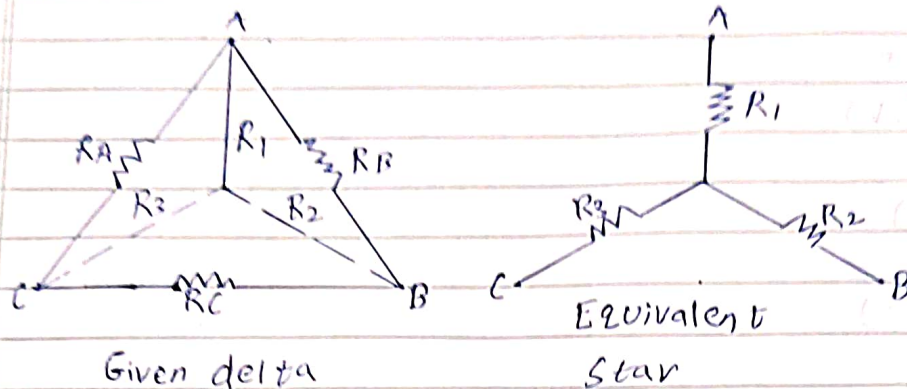 A
R1
RA
RB
R3
R2
C
RC
B
Given delta
A
R1
R3
R2
C
B
Equivalent
Star